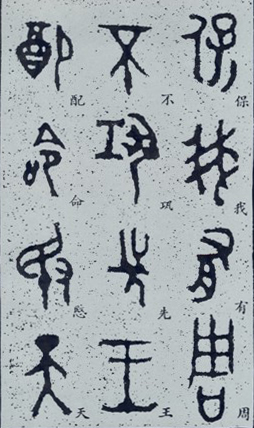 保我有周
不巩先王
配命愍天